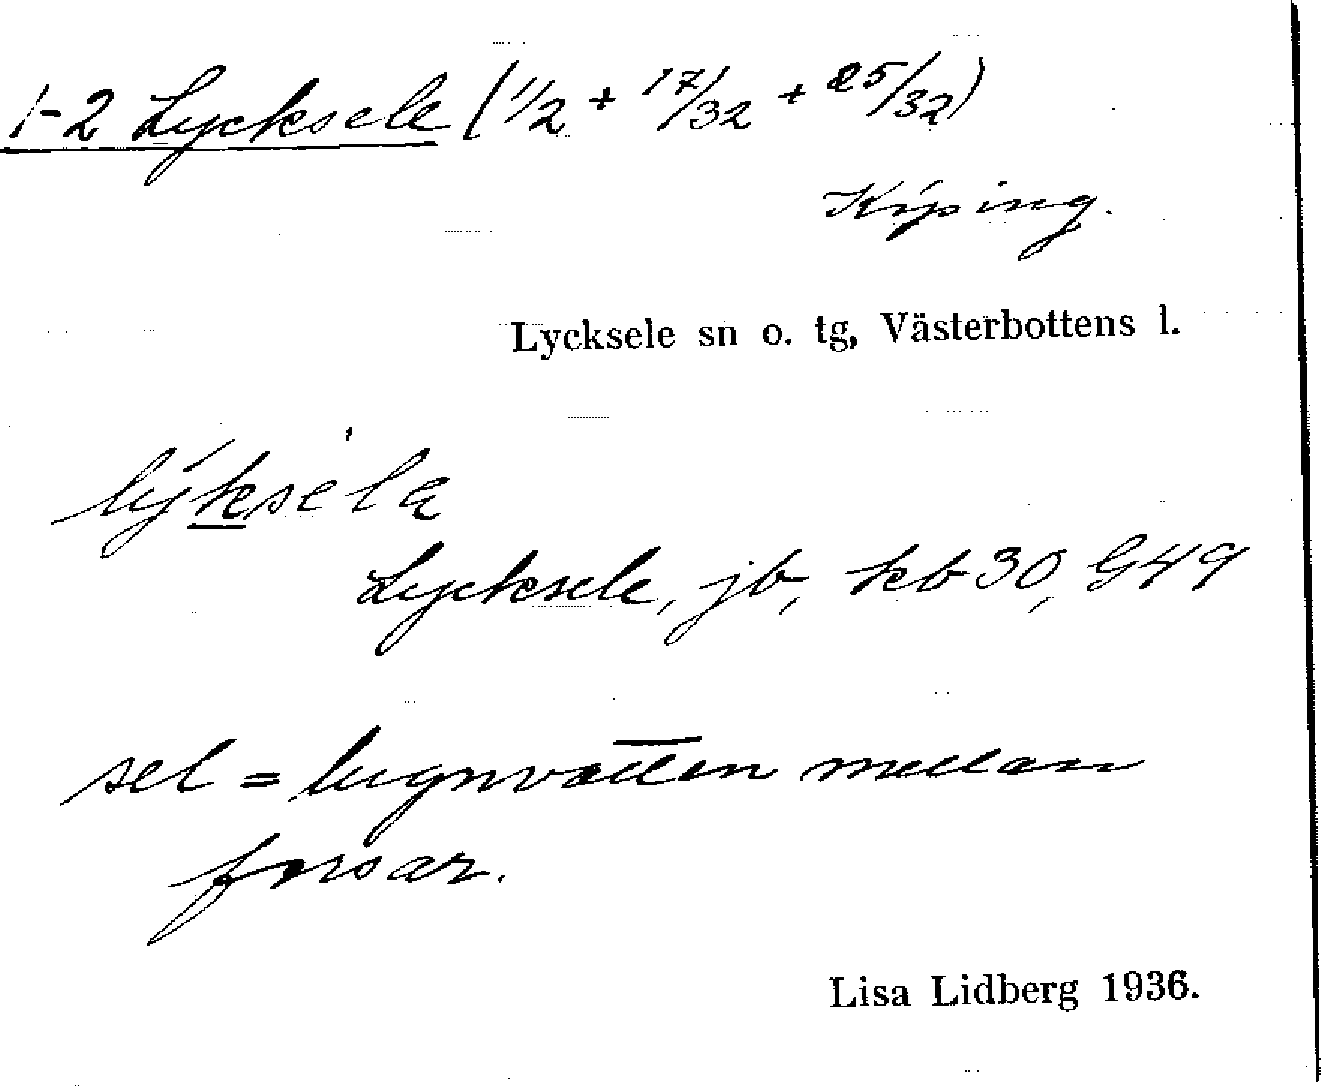 1-2 Lycksele (1/2 + 17/32 + 25/32)
Köping.
Lycksele sn o. tg, Västerbottens l.
lýksela
Lycksele, jb, kb 30, G 49
sel = lugnvatten mellan
forsar.
Lisa Lidberg 1936.